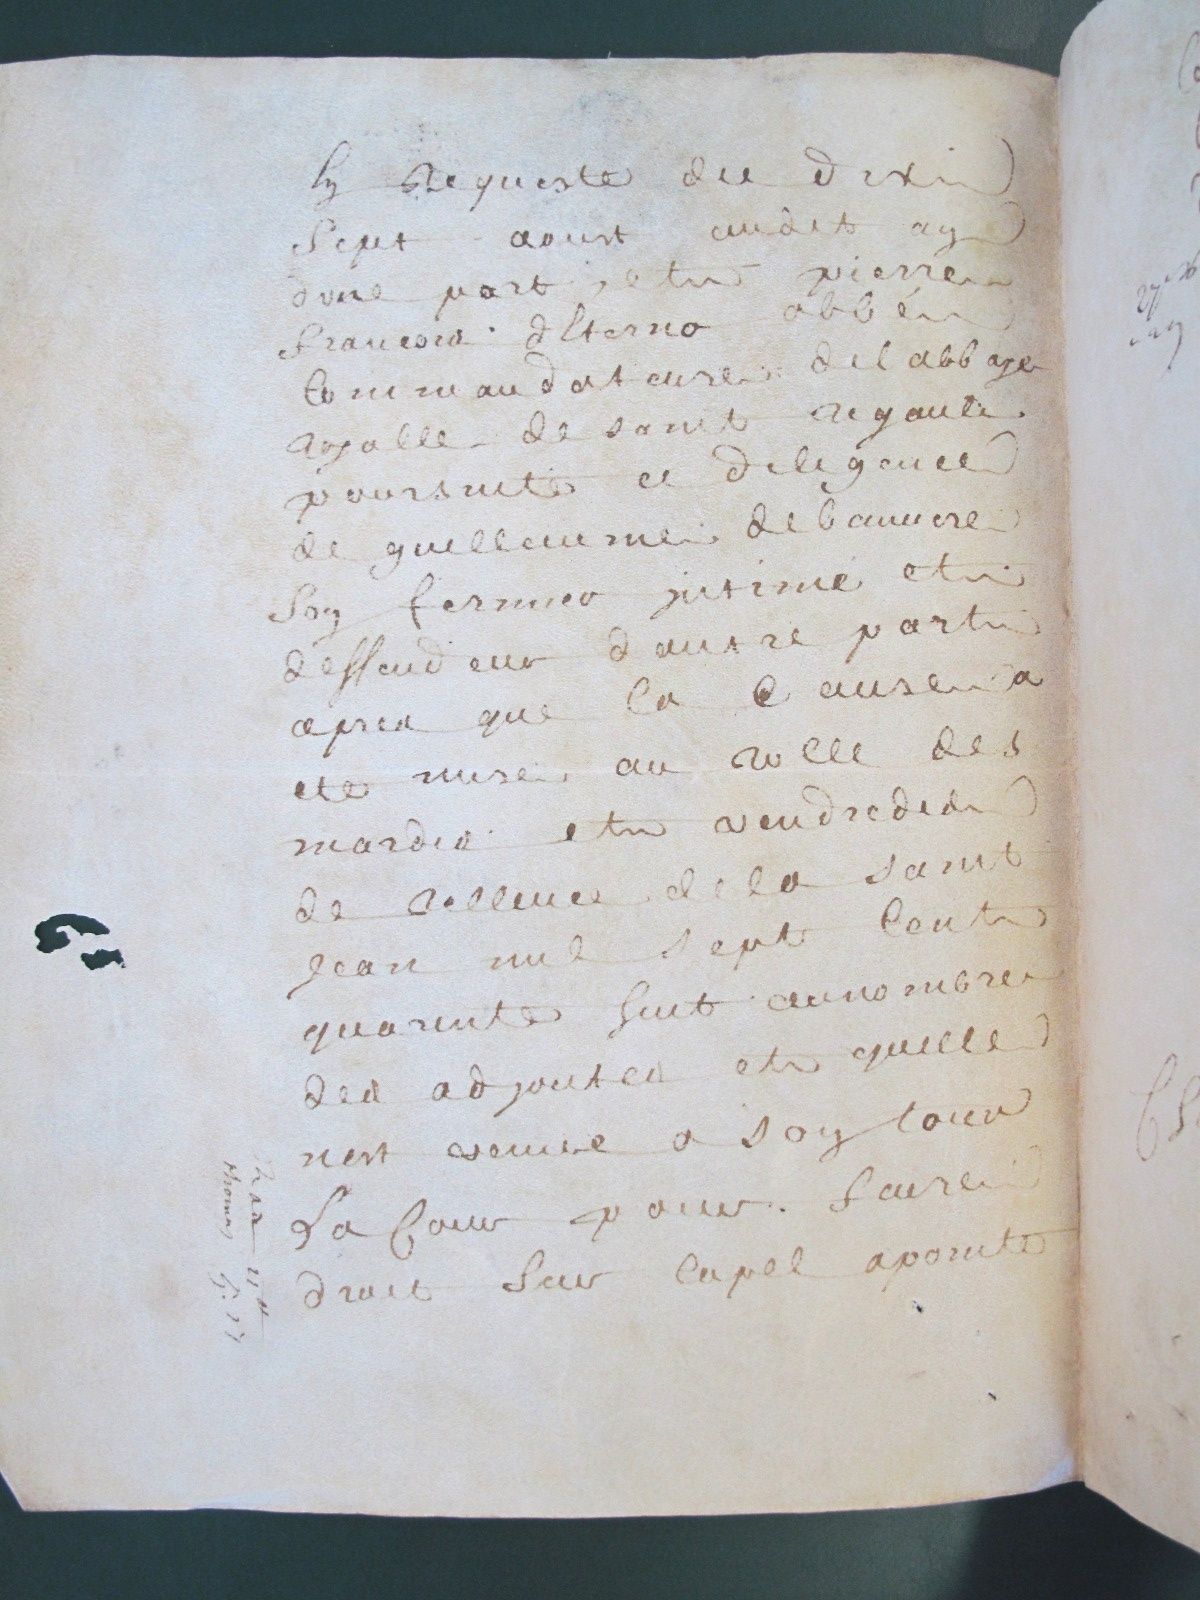 sa requeste du dix
sept aoust audit an
dune part, et pierre
francois dEterno abbé
Commandataire de l abbaye
royalle de saint rigault
poursuite et deligence
de guilleaume debauviere
son fermier jntimé et
deffendeur dautre part
apres que la Cause a
ete mise au rolle des
mardis et vendredis
de rellevee de la saint
Jean mil sept Cent
quarente huit au nombre
des adjoutes et quelle
nest venue a son tour
La Cour pour faire
droit sur lapel apointe